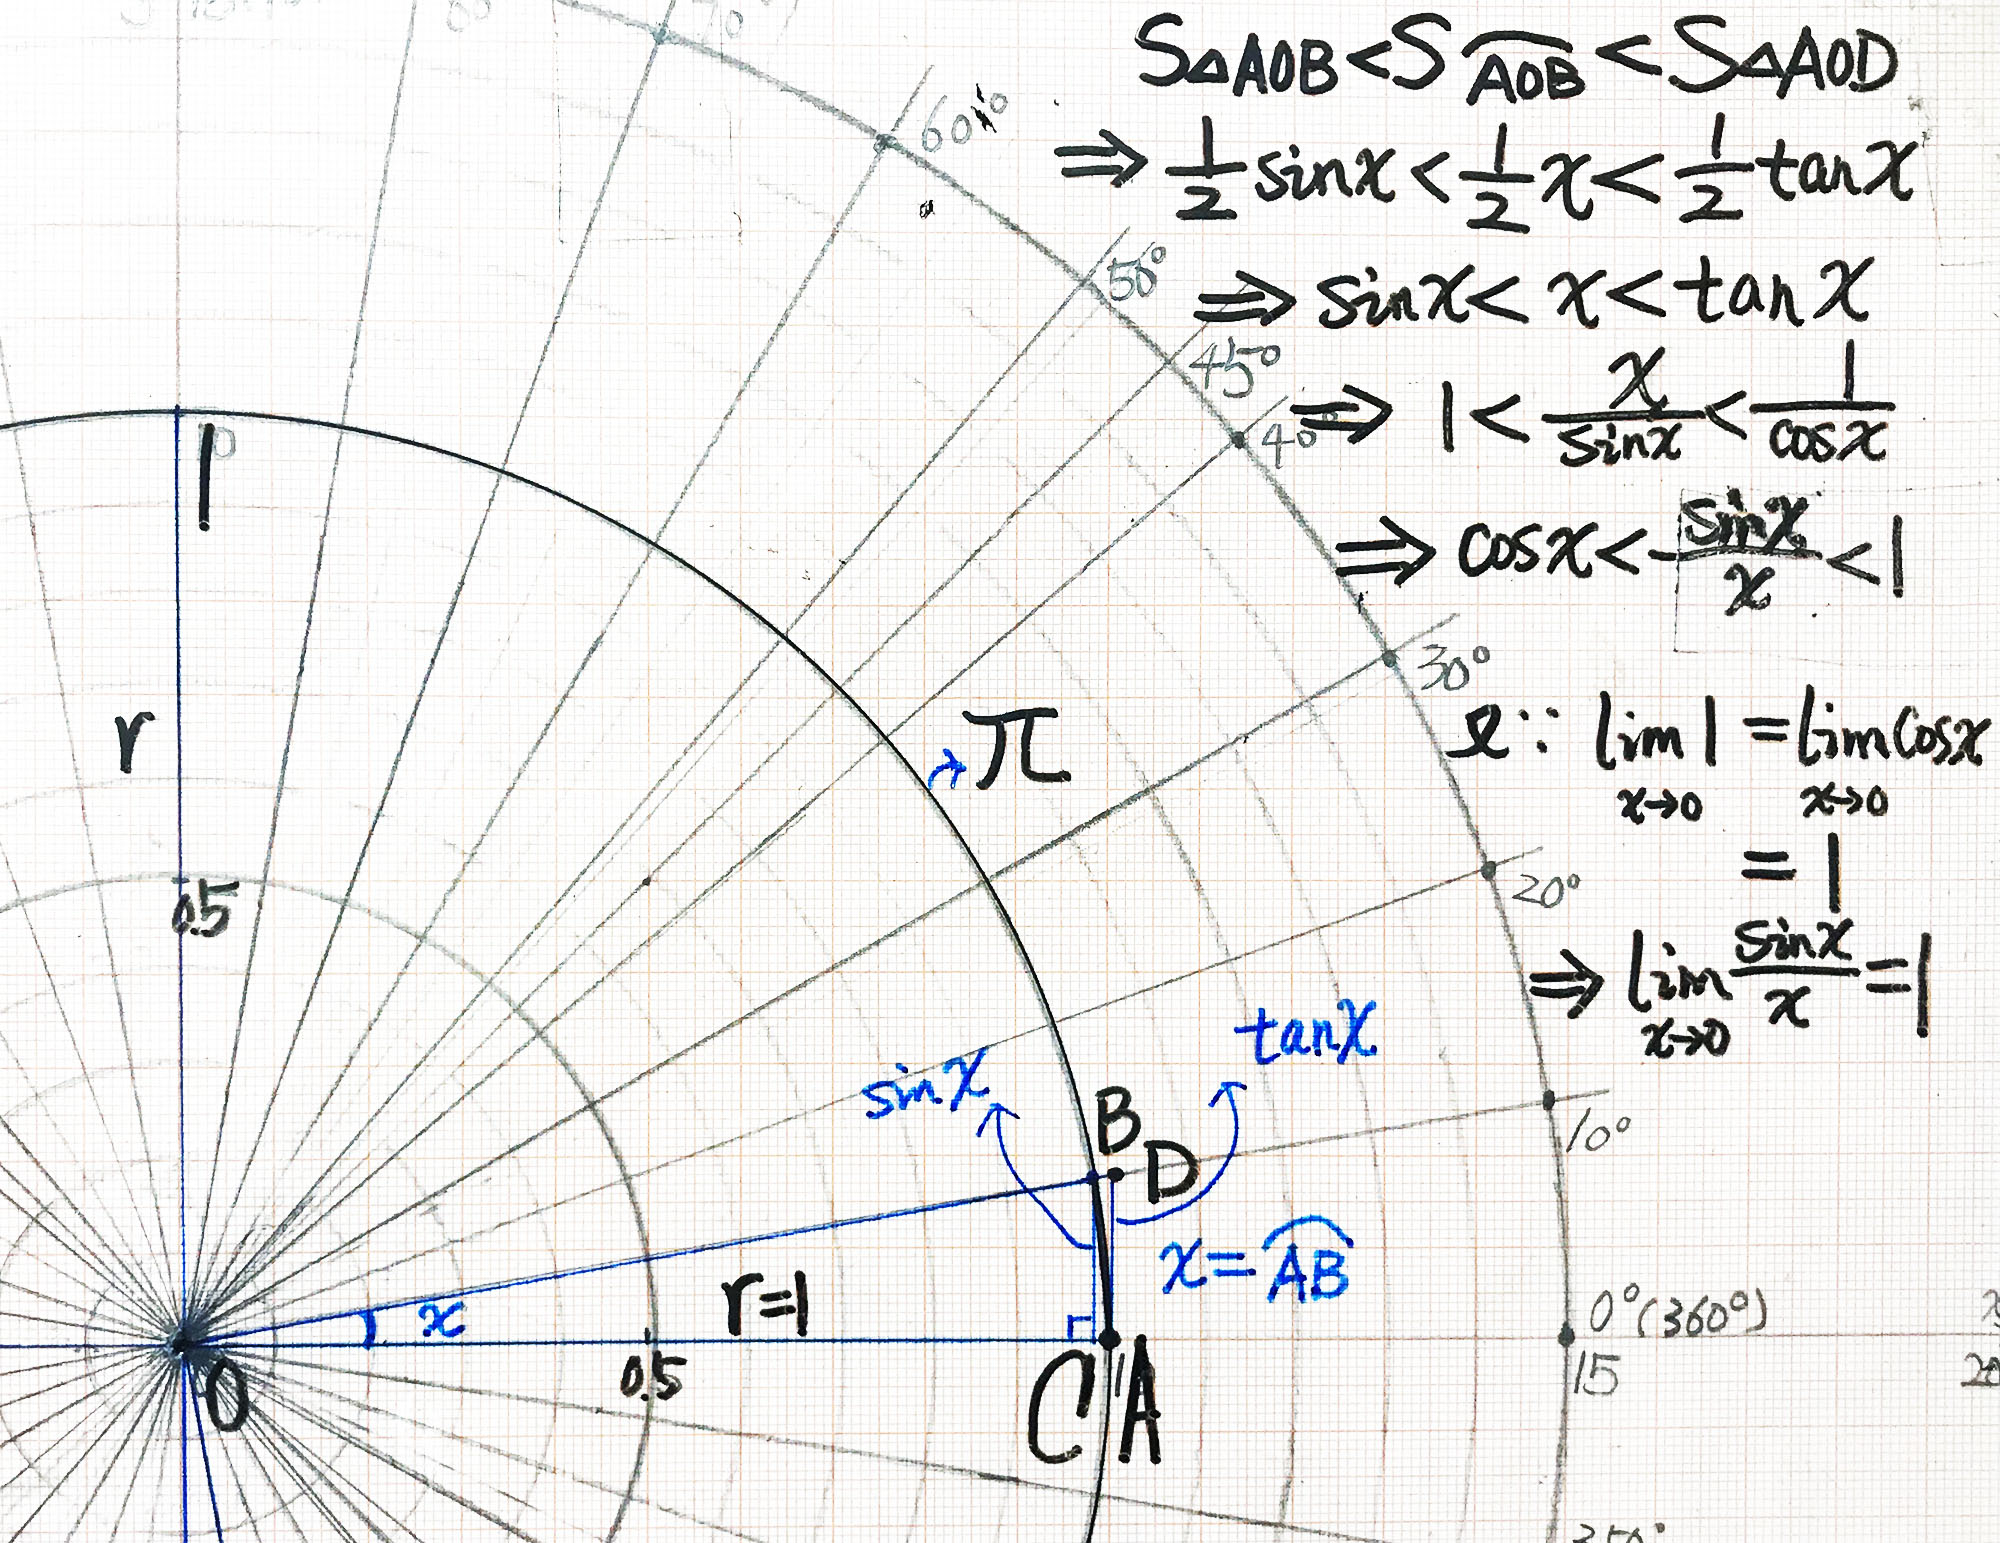 S△AOB < S⌒AOB < S△AOD
⇒ 1/2 sinx < 1/2 x < 1/2 tanx
⇒ sinx < x < tanx
⇒ 1 < x/sinx < 1/cosx
⇒ cosx < sinx/x < 1
∵ lim 1 = lim cosx
x→0 x→0
= 1
⇒ lim sinx/x = 1
x→0
70°
60°
50°
45°
40°
30°
20°
10°
0°(360°)
15
20
1
r
0.5
π
sinx
tanx
B
D
x = ⌒AB
x
r=1
O
0.5
C
1
A